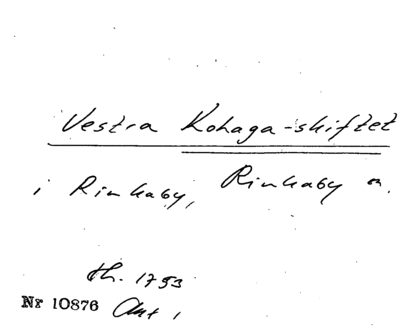 Vestra Kohaga-skiftet
i Rinkaby, Rinkaby sn.
th. 1753
Nr 10876 Akt 1